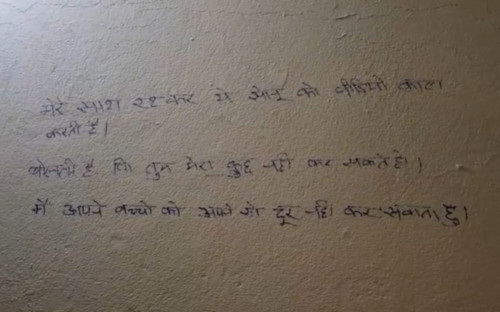 मेरे साथ रहकर ये सोनू को वीडियो काल
करती है।
बोलती है कि तुम मेरा कुछ नही कर सकते हो।
मैं अपने बच्चो को अपने से दूर नहि कर सकता हु।